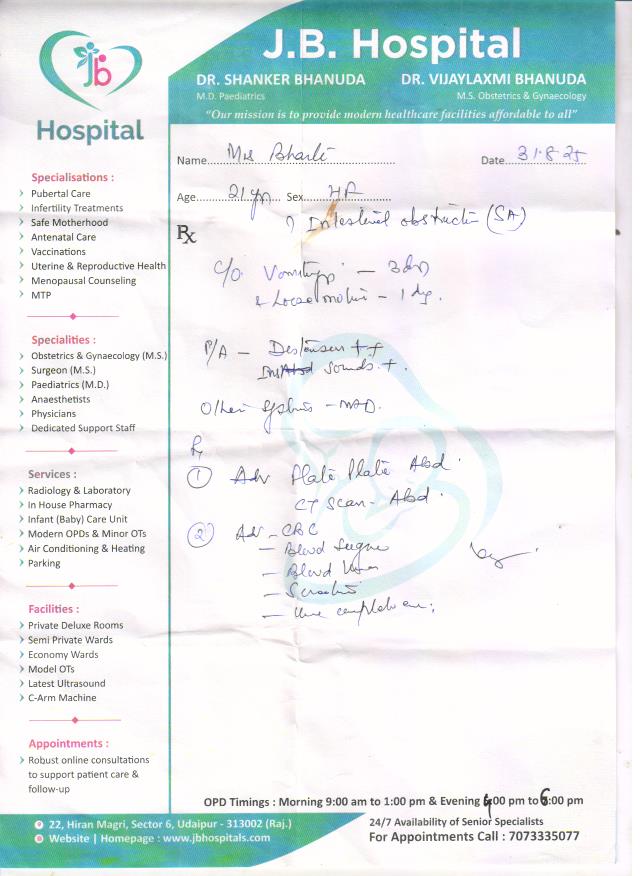 jb
Hospital
J.B. Hospital
DR. SHANKER BHANUDA
M.D. Paediatrics
DR. VIJAYLAXMI BHANUDA
M.S. Obstetrics & Gynaecology
"Our mission is to provide modern healthcare facilities affordable to all"
Name Date 31.8.25
Age 21 yrs Sex
Rx
Intestinal obstruction (SA)
C/O Vomiting - 3 day
& Loose motion - 1 day.
P/A - Distension ++
Sounds +.
Other systems - NAD.
Rx
1 Adv Plate Plate Abd.
CT Scan - Abd.
2 Adv - CBC
- Blood Sugar
- Blood Urea
-
- Urine complete
Specialisations :
Pubertal Care
Infertility Treatments
Safe Motherhood
Antenatal Care
Vaccinations
Uterine & Reproductive Health
Menopausal Counseling
MTP
Specialities :
Obstetrics & Gynaecology (M.S.)
Surgeon (M.S.)
Paediatrics (M.D.)
Anaesthetists
Physicians
Dedicated Support Staff
Services :
Radiology & Laboratory
In House Pharmacy
Infant (Baby) Care Unit
Modern OPDs & Minor OTs
Air Conditioning & Heating
Parking
Facilities :
Private Deluxe Rooms
Semi Private Wards
Economy Wards
Model OTs
Latest Ultrasound
C-Arm Machine
Appointments :
Robust online consultations
to support patient care &
follow-up
OPD Timings : Morning 9:00 am to 1:00 pm & Evening 4:00 pm to 6:00 pm
22, Hiran Magri, Sector 6, Udaipur - 313002 (Raj.)
Website | Homepage : www.jbhospitals.com
24/7 Availability of Senior Specialists
For Appointments Call : 7073335077